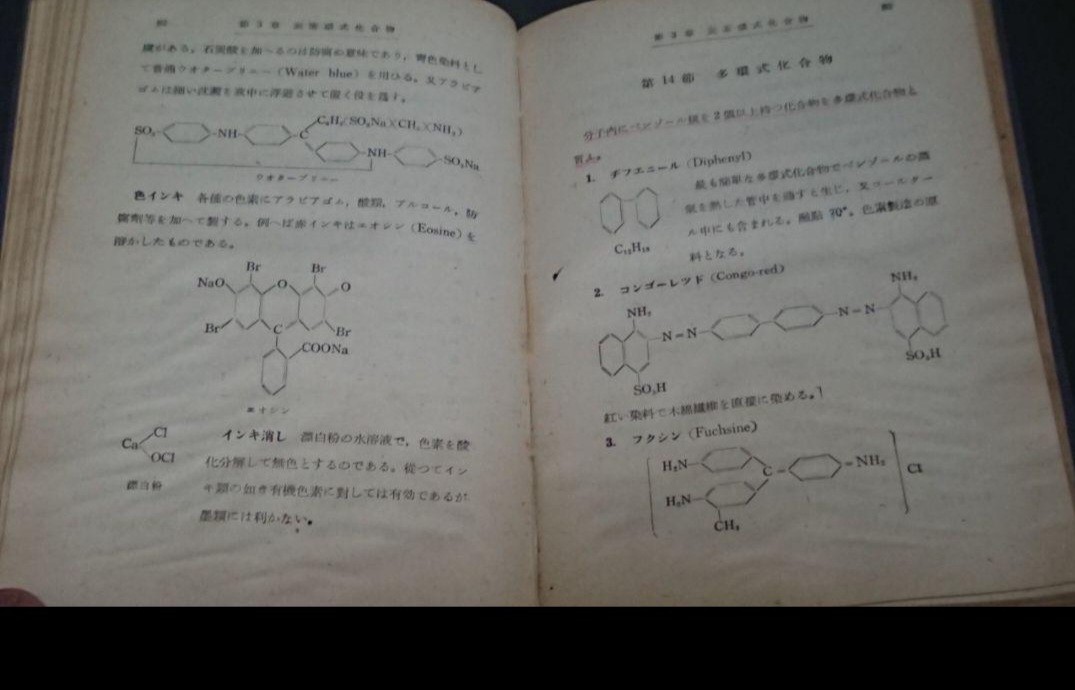 第3章 芳香環式化合物
慮がある。石炭酸を加へるのは防腐の意味であり,青色染料とし
て普通ウオターブリュー(Water blue)を用ひる。又アラビア
ゴムは細い沈澱を液中に浮遊させて置く役を爲す。
SO₃ NH C C₆H₂(SO₃Na)(CH₃)(NH₂)
NH SO₃Na
ウオターブリュー
色インキ 各種の色素にアラビアゴム,酸類,アルコール,防
腐劑等を加へて製する。例へば赤インキはエオシン(Eosine)を
溶かしたものである。
Br Br
NaO O O
Br C Br
COONa
エオシン
Ca Cl OCl
漂白粉
インキ消し 漂白粉の水溶液で,色素を酸
化分解して無色とするのである。從つてイン
キ類の如き有機色素に對しては有効であるが
墨類には利かない。
第3章 芳香環式化合物
第14節 多環式化合物
分子内にベンゾール核を2個以上持つ化合物を多環式化合物と
言ふ。
1. ヂフエニール(Diphenyl)
最も簡單な多環式化合物でベンゾールの蒸
氣を熱した管中を通すと生じ,又コールター
ル中にも含まれる。融點70°。色素製造の原
料となる。
C₁₂H₁₀
2. コンゴーレッド(Congo-red)
NH₂ N=N N=N NH₂
SO₃H SO₃H
紅い染料で木綿纖維を直接に染める。
3. フクシン(Fuchsine)
H₂N C NH₂ Cl
H₂N
CH₃